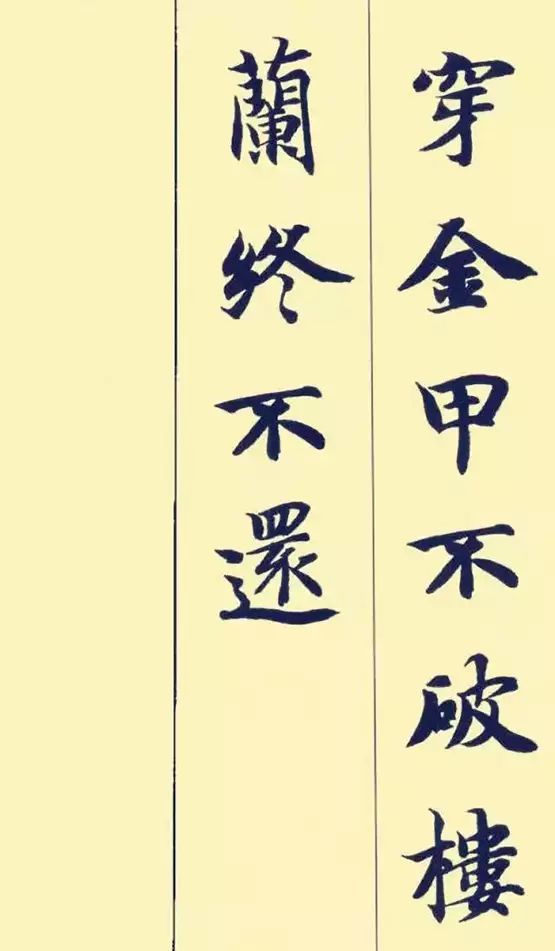 穿金甲不破樓
蘭終不還